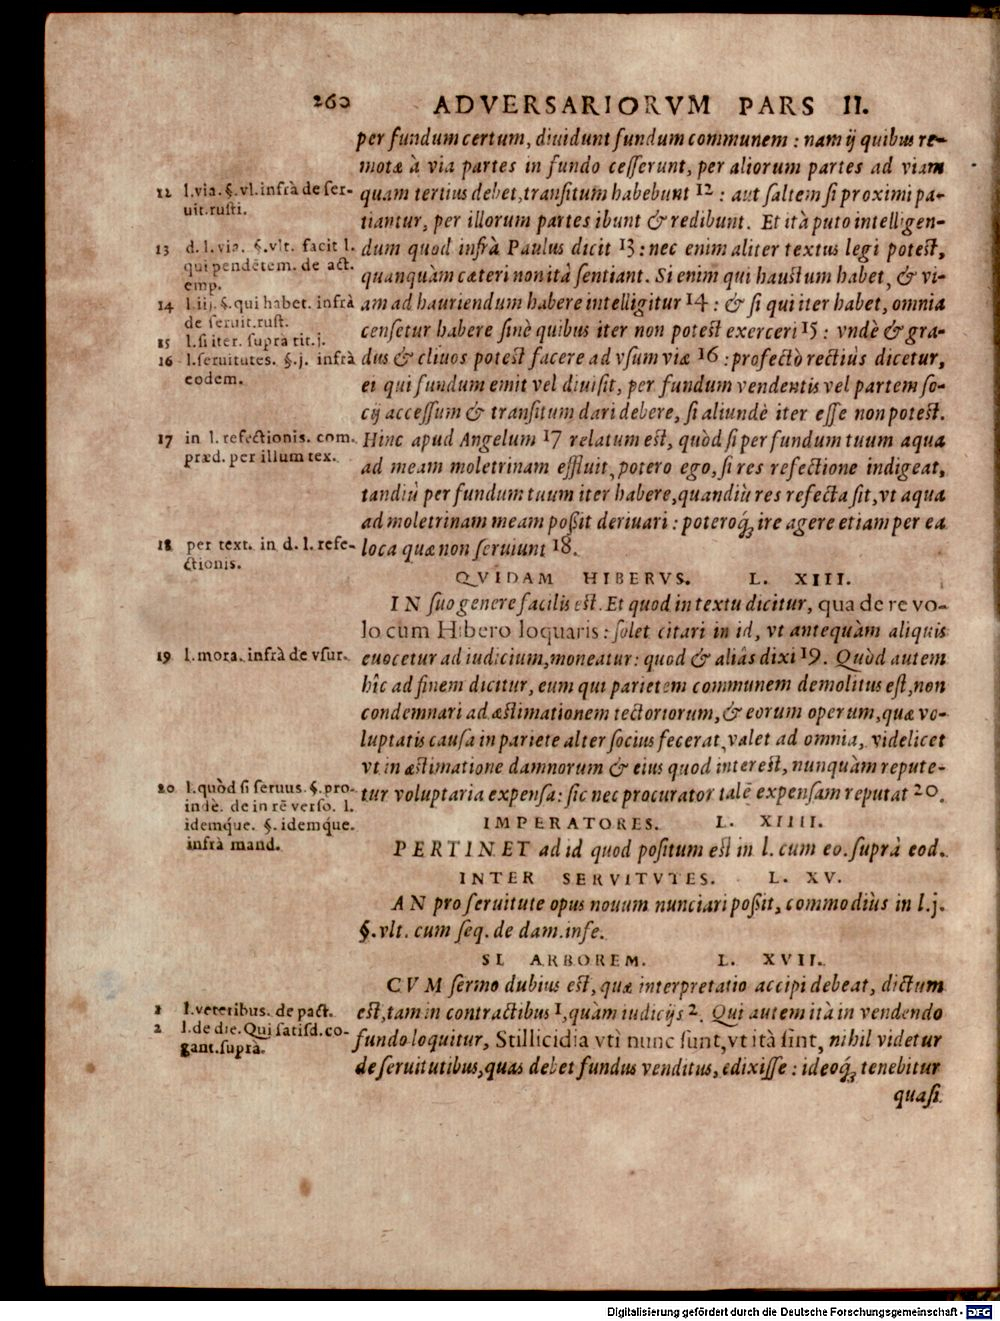 260 ADVERSARIORVM PARS II.
per fundum certum, diuidunt fundum communem : nam ij quibus re-
motæ à via partes in fundo cesserunt, per aliorum partes ad viam
quam tertius debet, transitum habebunt 12 : aut saltem si proximi pa-
tiantur, per illorum partes ibunt & redibunt. Et ità puto intelligen-
dum quod infrà Paulus dicit 13 : nec enim aliter textus legi potest,
quanquàm cæteri non ità sentiant. Si enim qui haustum habet, & vi-
am ad hauriendum habere intelligitur 14 : & si qui iter habet, omnia
censetur habere sinè quibus iter non potest exerceri 15 : vndè & gra-
dus & cliuos potest facere ad vsum viæ 16 : profectò rectiùs dicetur,
ei qui fundum emit vel diuisit, per fundum vendentis vel partem so-
cij accessum & transitum dari debere, si aliundè iter esse non potest.
Hinc apud Angelum 17 relatum est, quòd si per fundum tuum aqua
ad meam moletrinam effluit, potero ego, si res refectione indigeat,
tandiù per fundum tuum iter habere, quandiù res refecta sit, vt aqua
ad moletrinam meam poßit deriuari : poteroq́; ire agere etiam per ea
loca quæ non seruiunt 18.
QVIDAM HIBERVS. L. XIII.
IN suo genere facilis est. Et quod in textu dicitur, qua de re vo-
lo cum Hibero loquaris : solet citari in id, vt antequàm aliquis
euocetur ad iudicium, moneatur : quod & aliâs dixi 19. Quòd autem
hîc ad finem dicitur, eum qui parietem communem demolitus est, non
condemnari ad æstimationem tectoriorum, & eorum operum, quæ vo-
luptatis causa in pariete alter socius fecerat, valet ad omnia, videlicet
vt in æstimatione damnorum & eius quod interest, nunquàm repute-
tur voluptaria expensa : sic nec procurator talē expensam reputat 20.
IMPERATORES. L. XIIII.
PERTINET ad id quod positum est in l. cum eo. suprà eod.
INTER SERVITVTES. L. XV.
AN pro seruitute opus nouum nunciari poßit, commodiùs in l. j.
§. vlt. cum seq. de dam. infe.
SI ARBOREM. L. XVII.
CVM sermo dubius est, quæ interpretatio accipi debeat, dictum
est, tam in contractibus 1, quàm iudicijs 2. Qui autem ità in vendendo
fundo loquitur, Stillicidia vti nunc sunt, vt ità sint, nihil videtur
de seruitutibus, quas debet fundus venditus, edixisse : ideoq́; tenebitur
quasi
12 l. via. §. vl. infrà de ser-
uit. rusti.
13 d. l. via. §. vlt. facit l.
qui pendētem. de act.
emp.
14 l. iij. §. qui habet. infrà
de seruit. rust.
15 l. si iter. suprà tit. j.
16 l. seruitutes. §. j. infrà
eodem.
17 in l. refectionis. com.
præd. per illum tex.
18 per text. in d. l. refe-
ctionis.
19 l. mora. infrà de vsur.
20 l. quòd si seruus. §. pro-
indè. de in rē verso. l.
idemq́ue. §. idemq́ue.
infrà mand.
1 l. veteribus. de pact.
2 l. de die. Qui satisd. co-
gant. suprà.
Digitalisierung gefördert durch die Deutsche Forschungsgemeinschaft - DFG